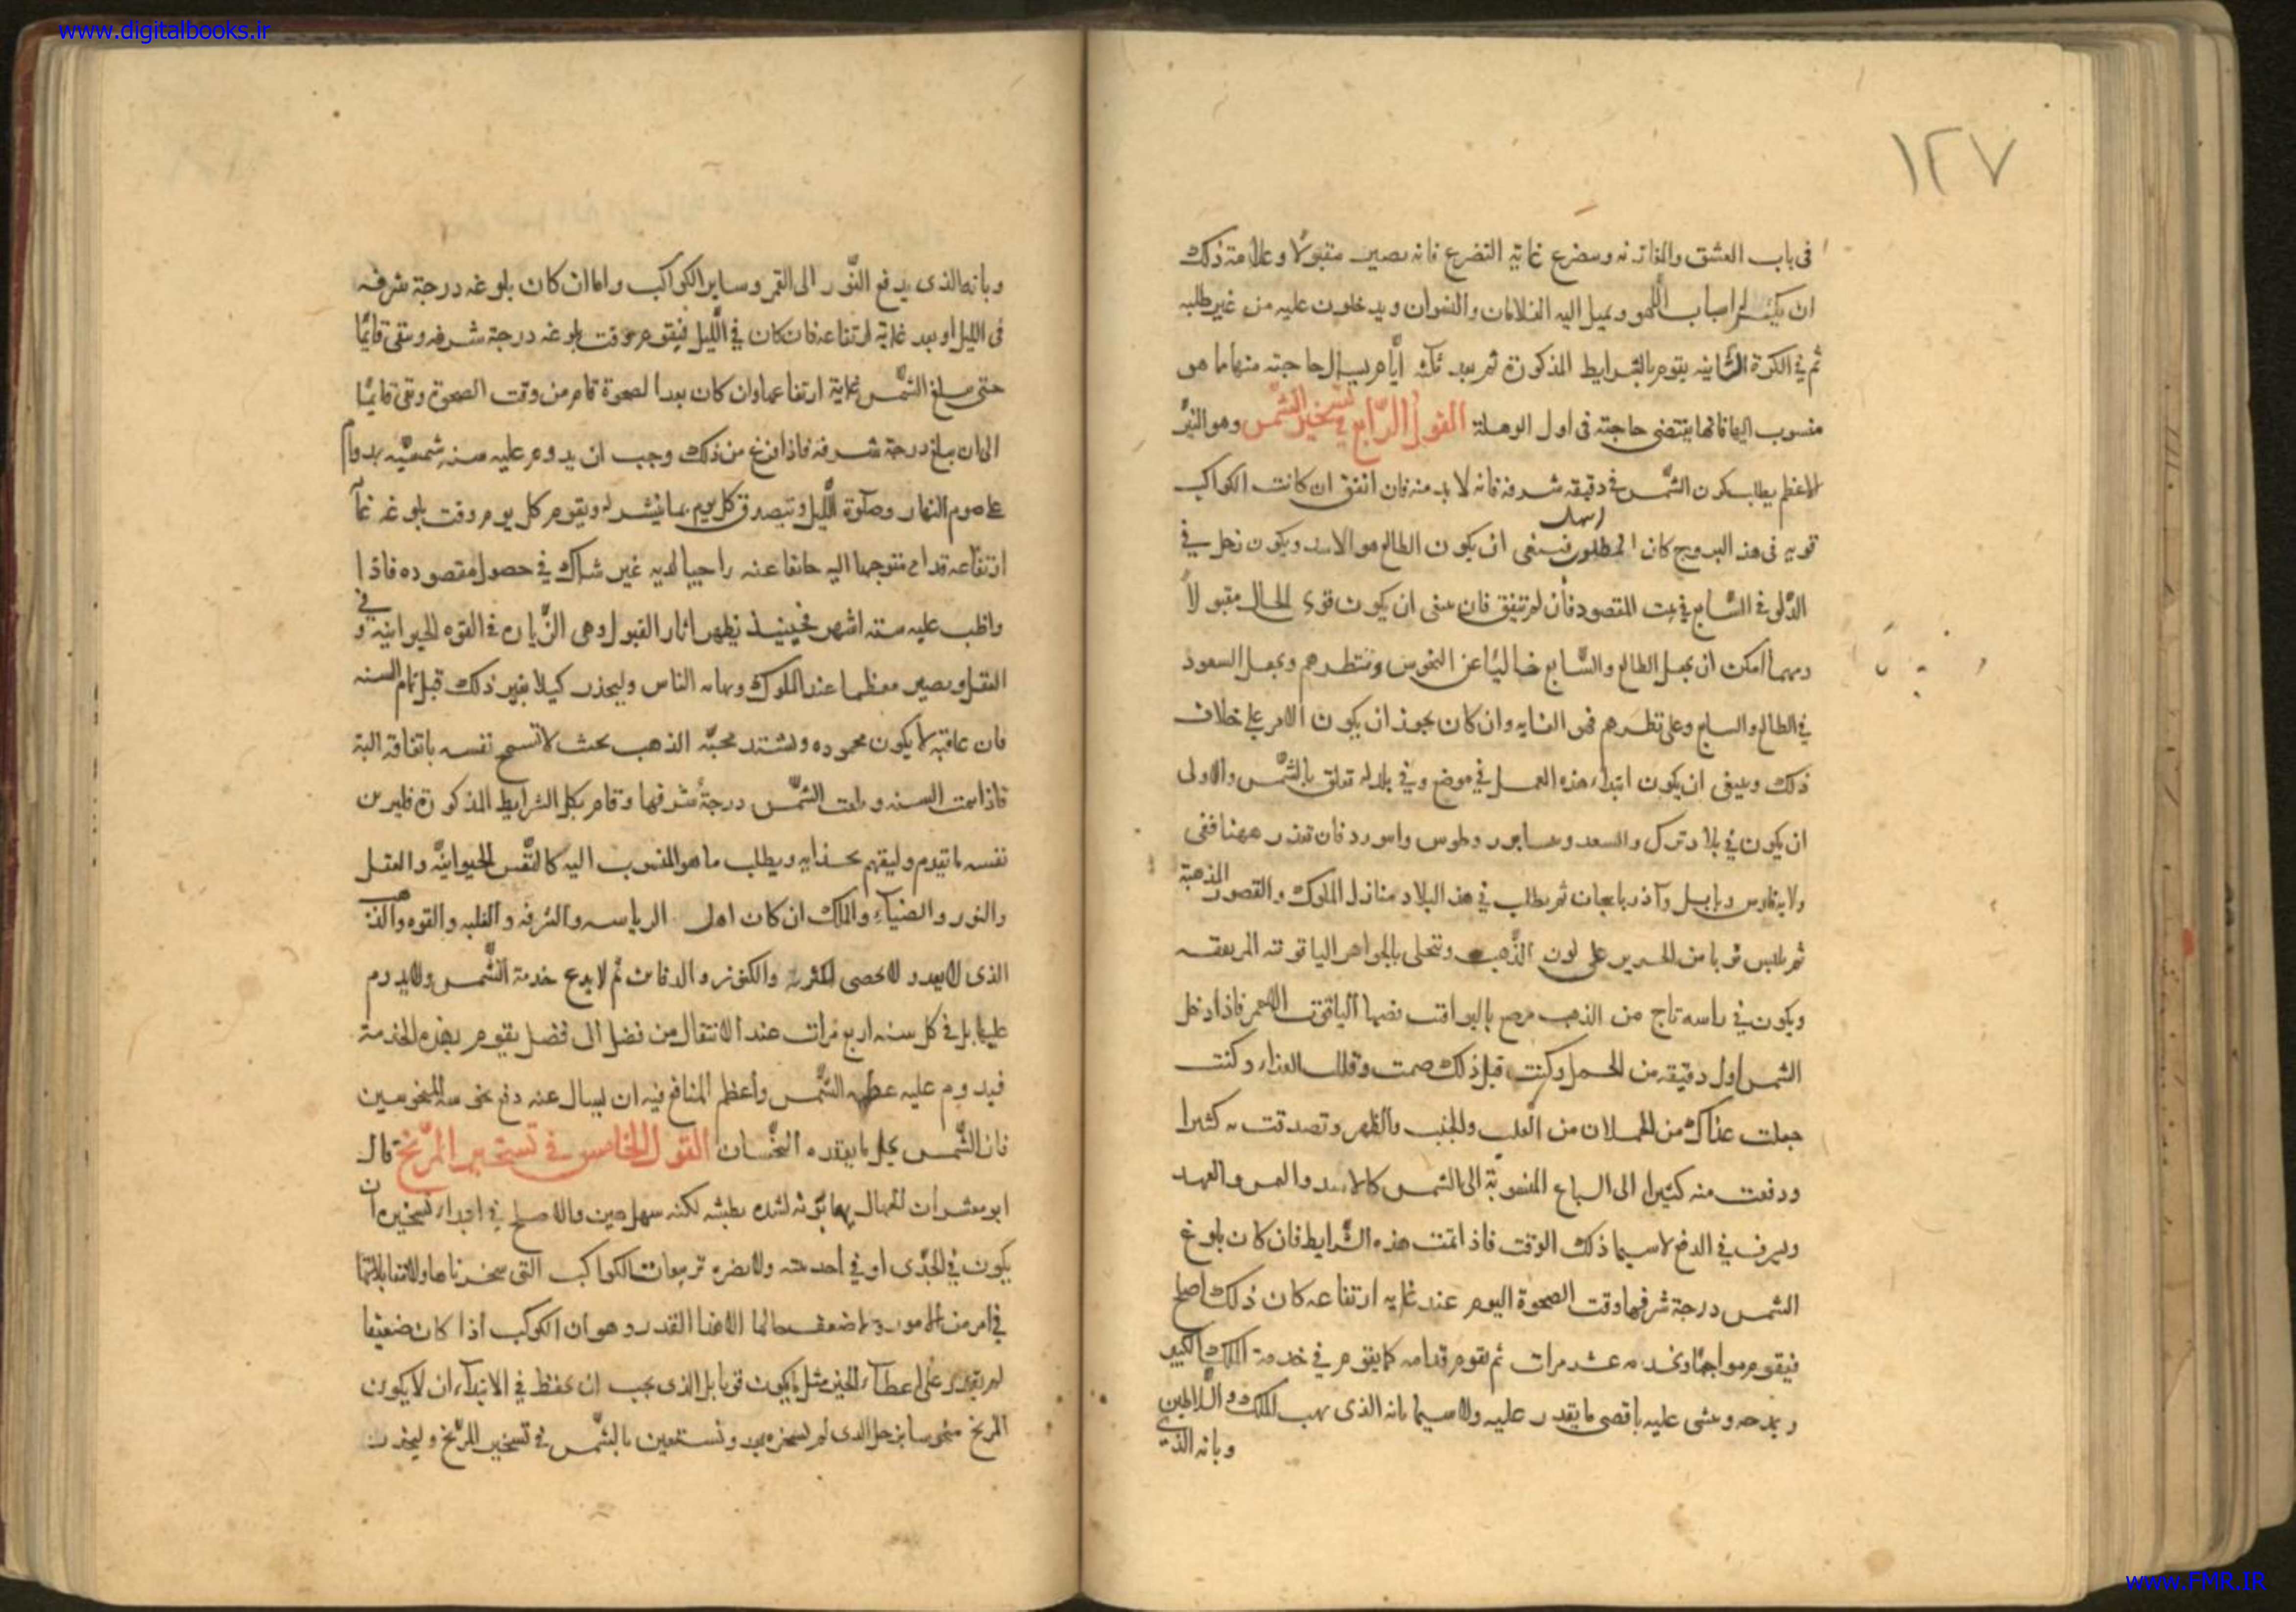 www.digitalbooks.ir
١٢٧
فى باب العشق والمغازنه ويتضرع غاية التضرع فانه يصير مقبولا وعلامة ذلك
ان اصحاب اللهو ويميل اليه الغلامان والنسوان ويدخلون عليه من غير طلبه
ثم فى الكرة الثانيه يقوم بالشرايط المذكورة ثم بعد ثلثة أيام يسأل حاجته منها ما هو
منسوب اليها فانها يقتضى حاجته فى اول الوهلة القول الرابع فى تسخير الشمس وهو النير
الاعظم يطلب كون الشمس فى دقيقه شرفه فانه لا بد منه فان اتفق ان كانت الكواكب
قويه فى هذه البروج كان المطلوب اسهل فينبغى ان يكون الطالع هو الاسد ويكون زحل فى
الدلو فى السابع فى بيت المقصود فأن لم يتفق فان ينبغى ان يكون قوى الحال مقبولاً
ومهما امكن ان يجعل الطالع والسابع خاليًا عن النحوس ونظرهم ويجعل السعود
فى الطالع والسابع وعلى نظرهم فهى الغايه وان كان يجوز ان يكون الامر على خلاف
ذلك وينبغى ان يكون ابتداء هذه العمل فى موضع وفى بلد له تعلق بالشمس والاولى
ان يكون فى بلاد ترك والسغد ونيسابور وطوس فان تعذر ههنا ففى
ولاية فارس وبابل وآذربايجان ثم يطلب فى هذه البلاد منازل الملوك والقصور المذهبة
ثم يلبس ثوبا من الحرير على لون الذهب ويتحلى بالجواهر الياقوتيه
ويكون فى راسه تاج من الذهب مرصع باليواقيت فصها الياقوت الاحمر فاذا دخل
الشمس اول دقيقه من الحمل وكنت قبل ذلك صمت وقللت الغذاء وكنت
جعلت غذاك من الحملان من القلب والجنب والظهر وتصدقت به كثيرا
ودفعت منه كثيرا الى السباع المنسوبة الى الشمس كالاسد والنمر والفهد
وليسرف فى الدفع لاسيما ذلك الوقت فاذا تمت هذه الشرايط فان كان بلوغ
الشمس درجة شرفها وقت الضحوة اليوم عند غايه ارتفاعه كان ذلك اصلح
فيقوم مواجها ويخدمه عشر مرات ثم يقوم قدامه كما يقوم فى خدمة الملك الكبير
ويمدحه ويثنى عليه باقصى ما يقدر عليه ولاسيما بانه الذى يهب الملك والسلاطين
وبانه الذى
وبانه الذى يدفع النور الى القمر وساير الكواكب واما ان كان بلوغه درجة شرفه
فى الليل او بعد غاية ارتفاعه فان كان فى الليل فيقوم وقت بلوغه درجة شرفه ويبقى قايمًا
حتى يبلغ الشمس غاية ارتفاعها وان كان بعد الضحوة قام من وقت الضحوة وبقى قايمًا
الى ان يبلغ درجة شرفه فاذا فرغ من ذلك وجب ان يدوم عليه سنه شمسيه بدوام
على صوم النهار وصلوة الليل وتتصدق كل يوم بما تيسر له ويقوم كل يوم وقت بلوغه غاية
ارتفاعه قدامه متوجها اليه خائفا عنه راجيا لديه غير شاك فى حصول مقصوده فاذا
واظب عليه ستة اشهر فحينئذ يظهر اثار القبول وهى الزيادة فى القوه الحيوانيه وفى
العقل ويصير معظما عند الملوك ويهابه الناس وليحذر كيلا يغير ذلك قبل تمام السنه
فان عاقبته لا يكون محموده ويشتد محبة الذهب بحيث لا تسمح نفسه بانفاقه البتة
فاذا تمت السنه وبلغت الشمس درجة شرفها وقام بكل الشرايط المذكورة فليزين
نفسه بما تقدم وليقم بحذايه ويطلب ما هو المنسوب اليه كالنفس الحيوانية والعقل
والنور والضياء والملك ان كان اهل الرياسه والشرف والغلبه والقوه والذهب
الذى لا يعد ولا يحصى لكثرته والكنوز والدفائن ثم لا يدع خدمة الشمس ولا يدوم
عليها بل فى كل سنه اربع مرات عند الانتقال من فصل الى فصل يقوم بهذه الخدمة
فيدوم عليه عطيه الشمس وأعظم المنافع فيه ان يسأل عنه دفع نحوسة المنحوسين
فان الشمس يحل ما يعقده النحسان القول الخامس فى تسخير المريخ قال
ابو معشر ان الجهال يهابونه لشدة بطشه لكنه سهل هين والاصلح فى ابتداء تسخيره ان
يكون فى الجدى او فى احد بيتيه ولا يضره تربيعات الكواكب التى سخرناها ولا مقابلاتها
فى امر من الامور ولا ضعف حالها الا هذا القدر وهو ان الكوكب اذا كان ضعيفا
لم يقدر على اعطاء الخير مثل ما يكون قويا بل الذى يجب ان يحفظ فى الابتداء ان لا يكون
المريخ منحوسا بزحل الذى لم نسخره بعد ونستعين بالشمس فى تسخير المريخ وليحذر
www.FMR.IR